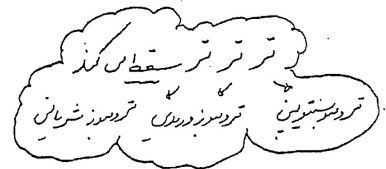 تر تر تر سقط اش کند
ترومبوسیتوپنی ترومبوز وریدی ترومبوز شریانی